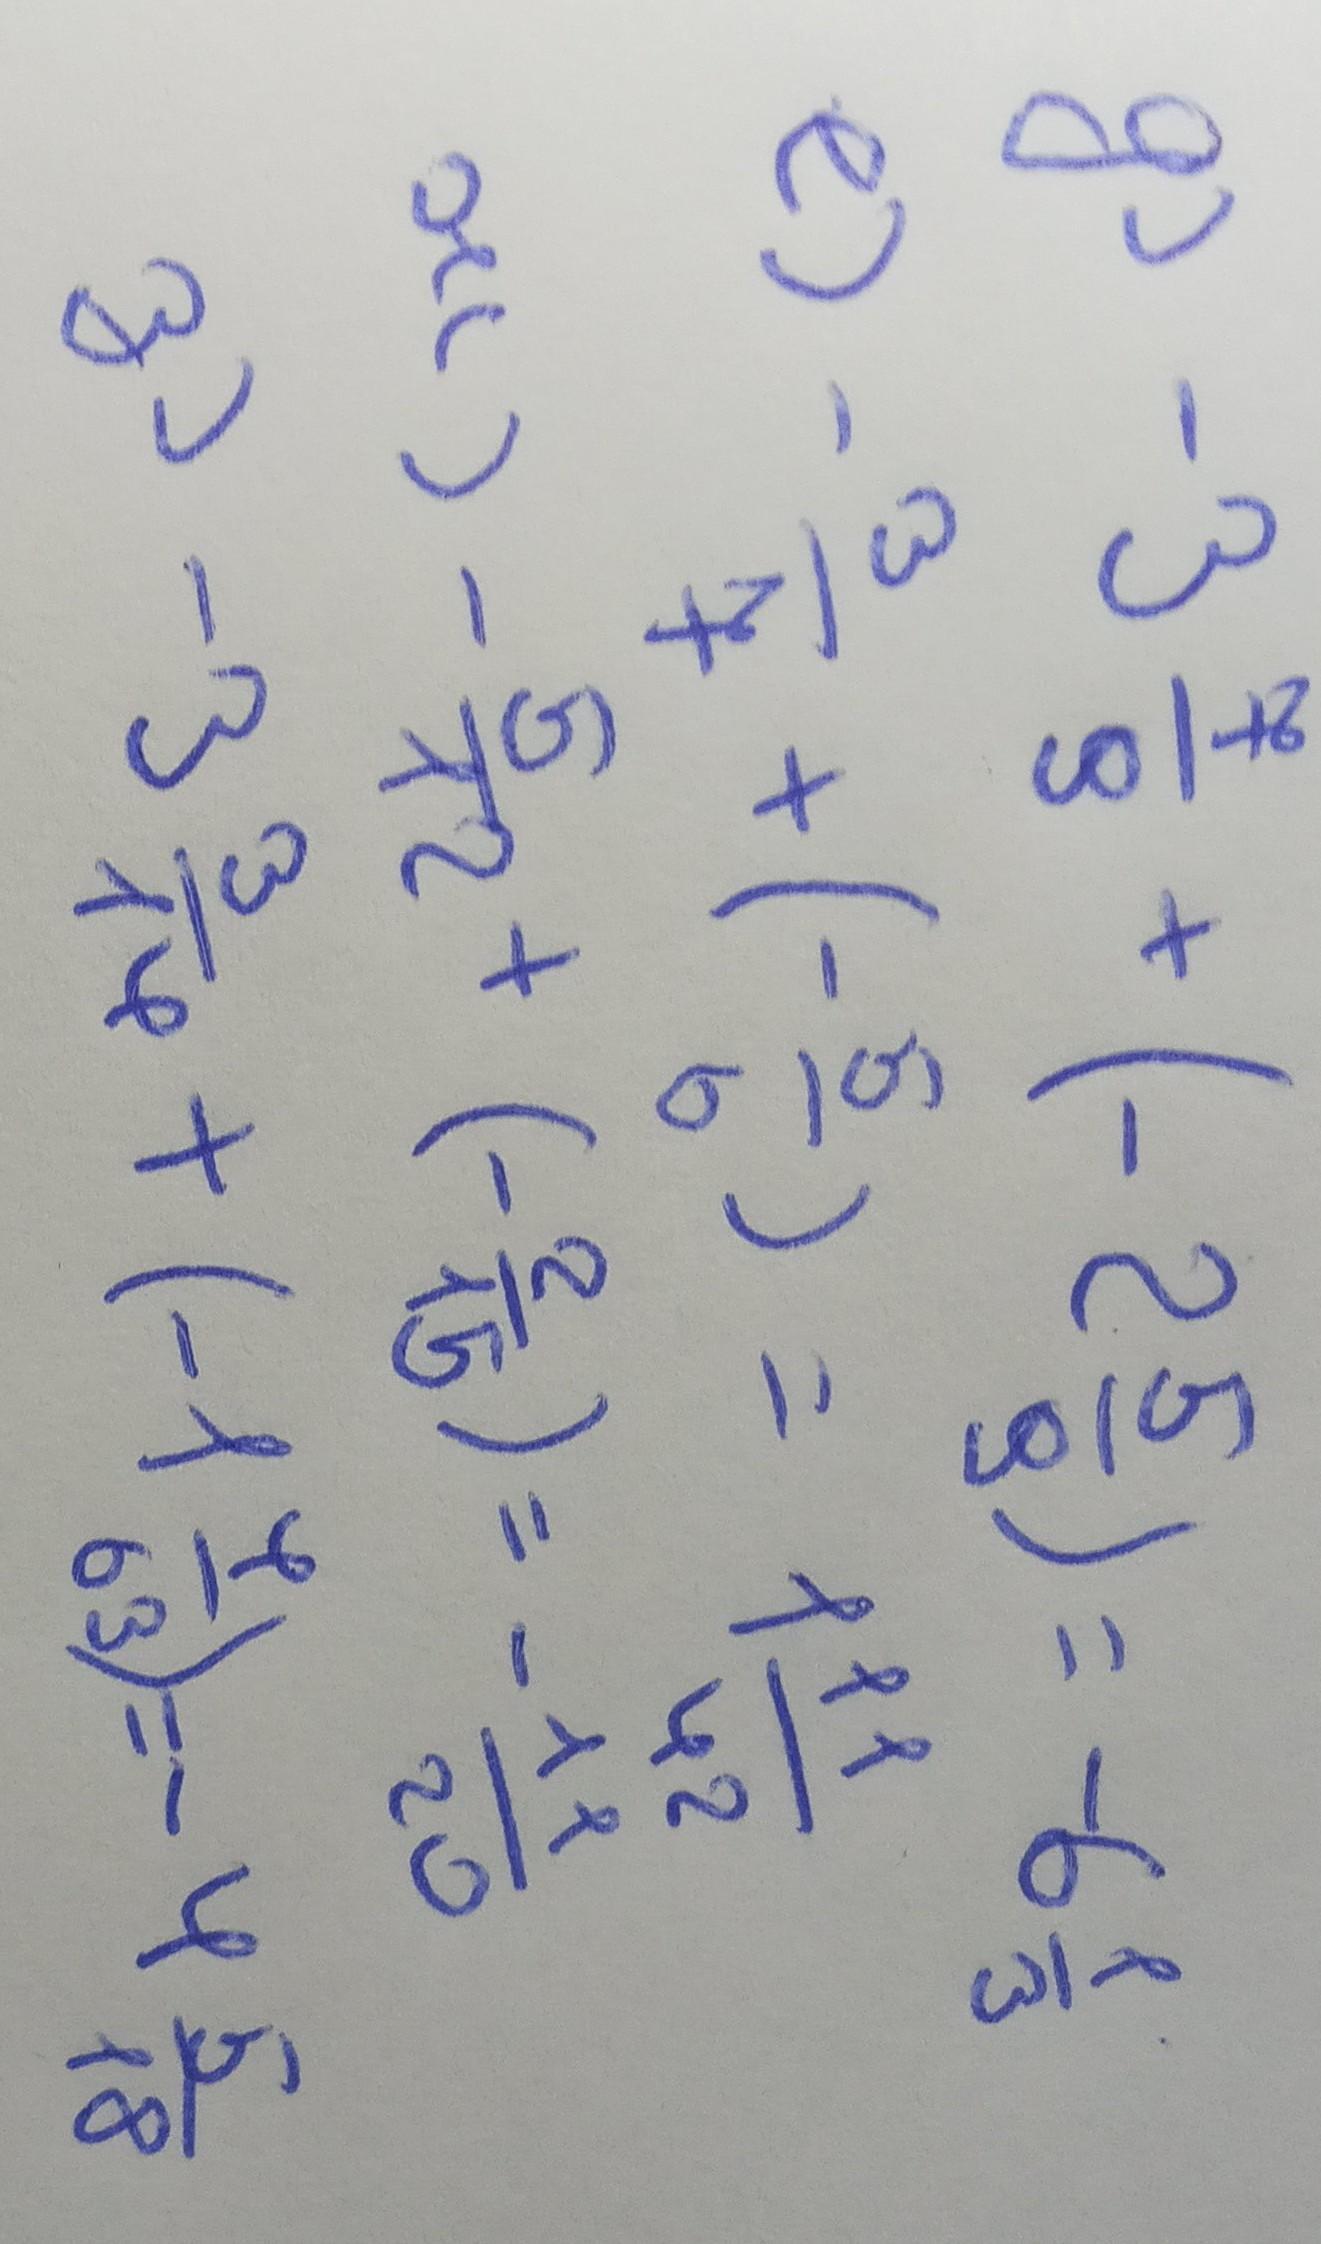 д) -3 7/9 + (-2 5/9) = -6 1/3
е) -3/7 + (-5/6) = 1 11/42
ж) -5/12 + (-2/15) = -11/20
з) -3 3/14 + (-1 4/63) = -4 5/18